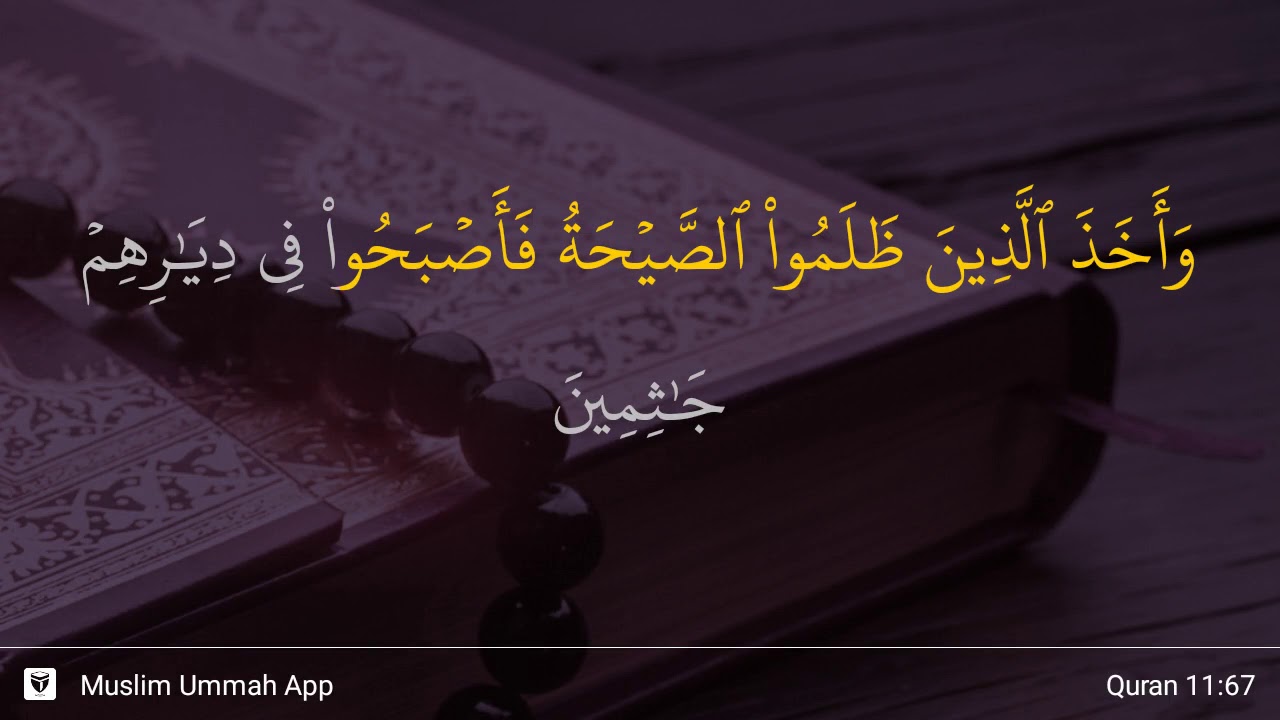 وَأَخَذَ ٱلَّذِينَ ظَلَمُوا۟ ٱلصَّيْحَةُ فَأَصْبَحُوا۟ فِى دِيَـٰرِهِمْ
جَـٰثِمِينَ
Muslim Ummah App
Quran 11:67